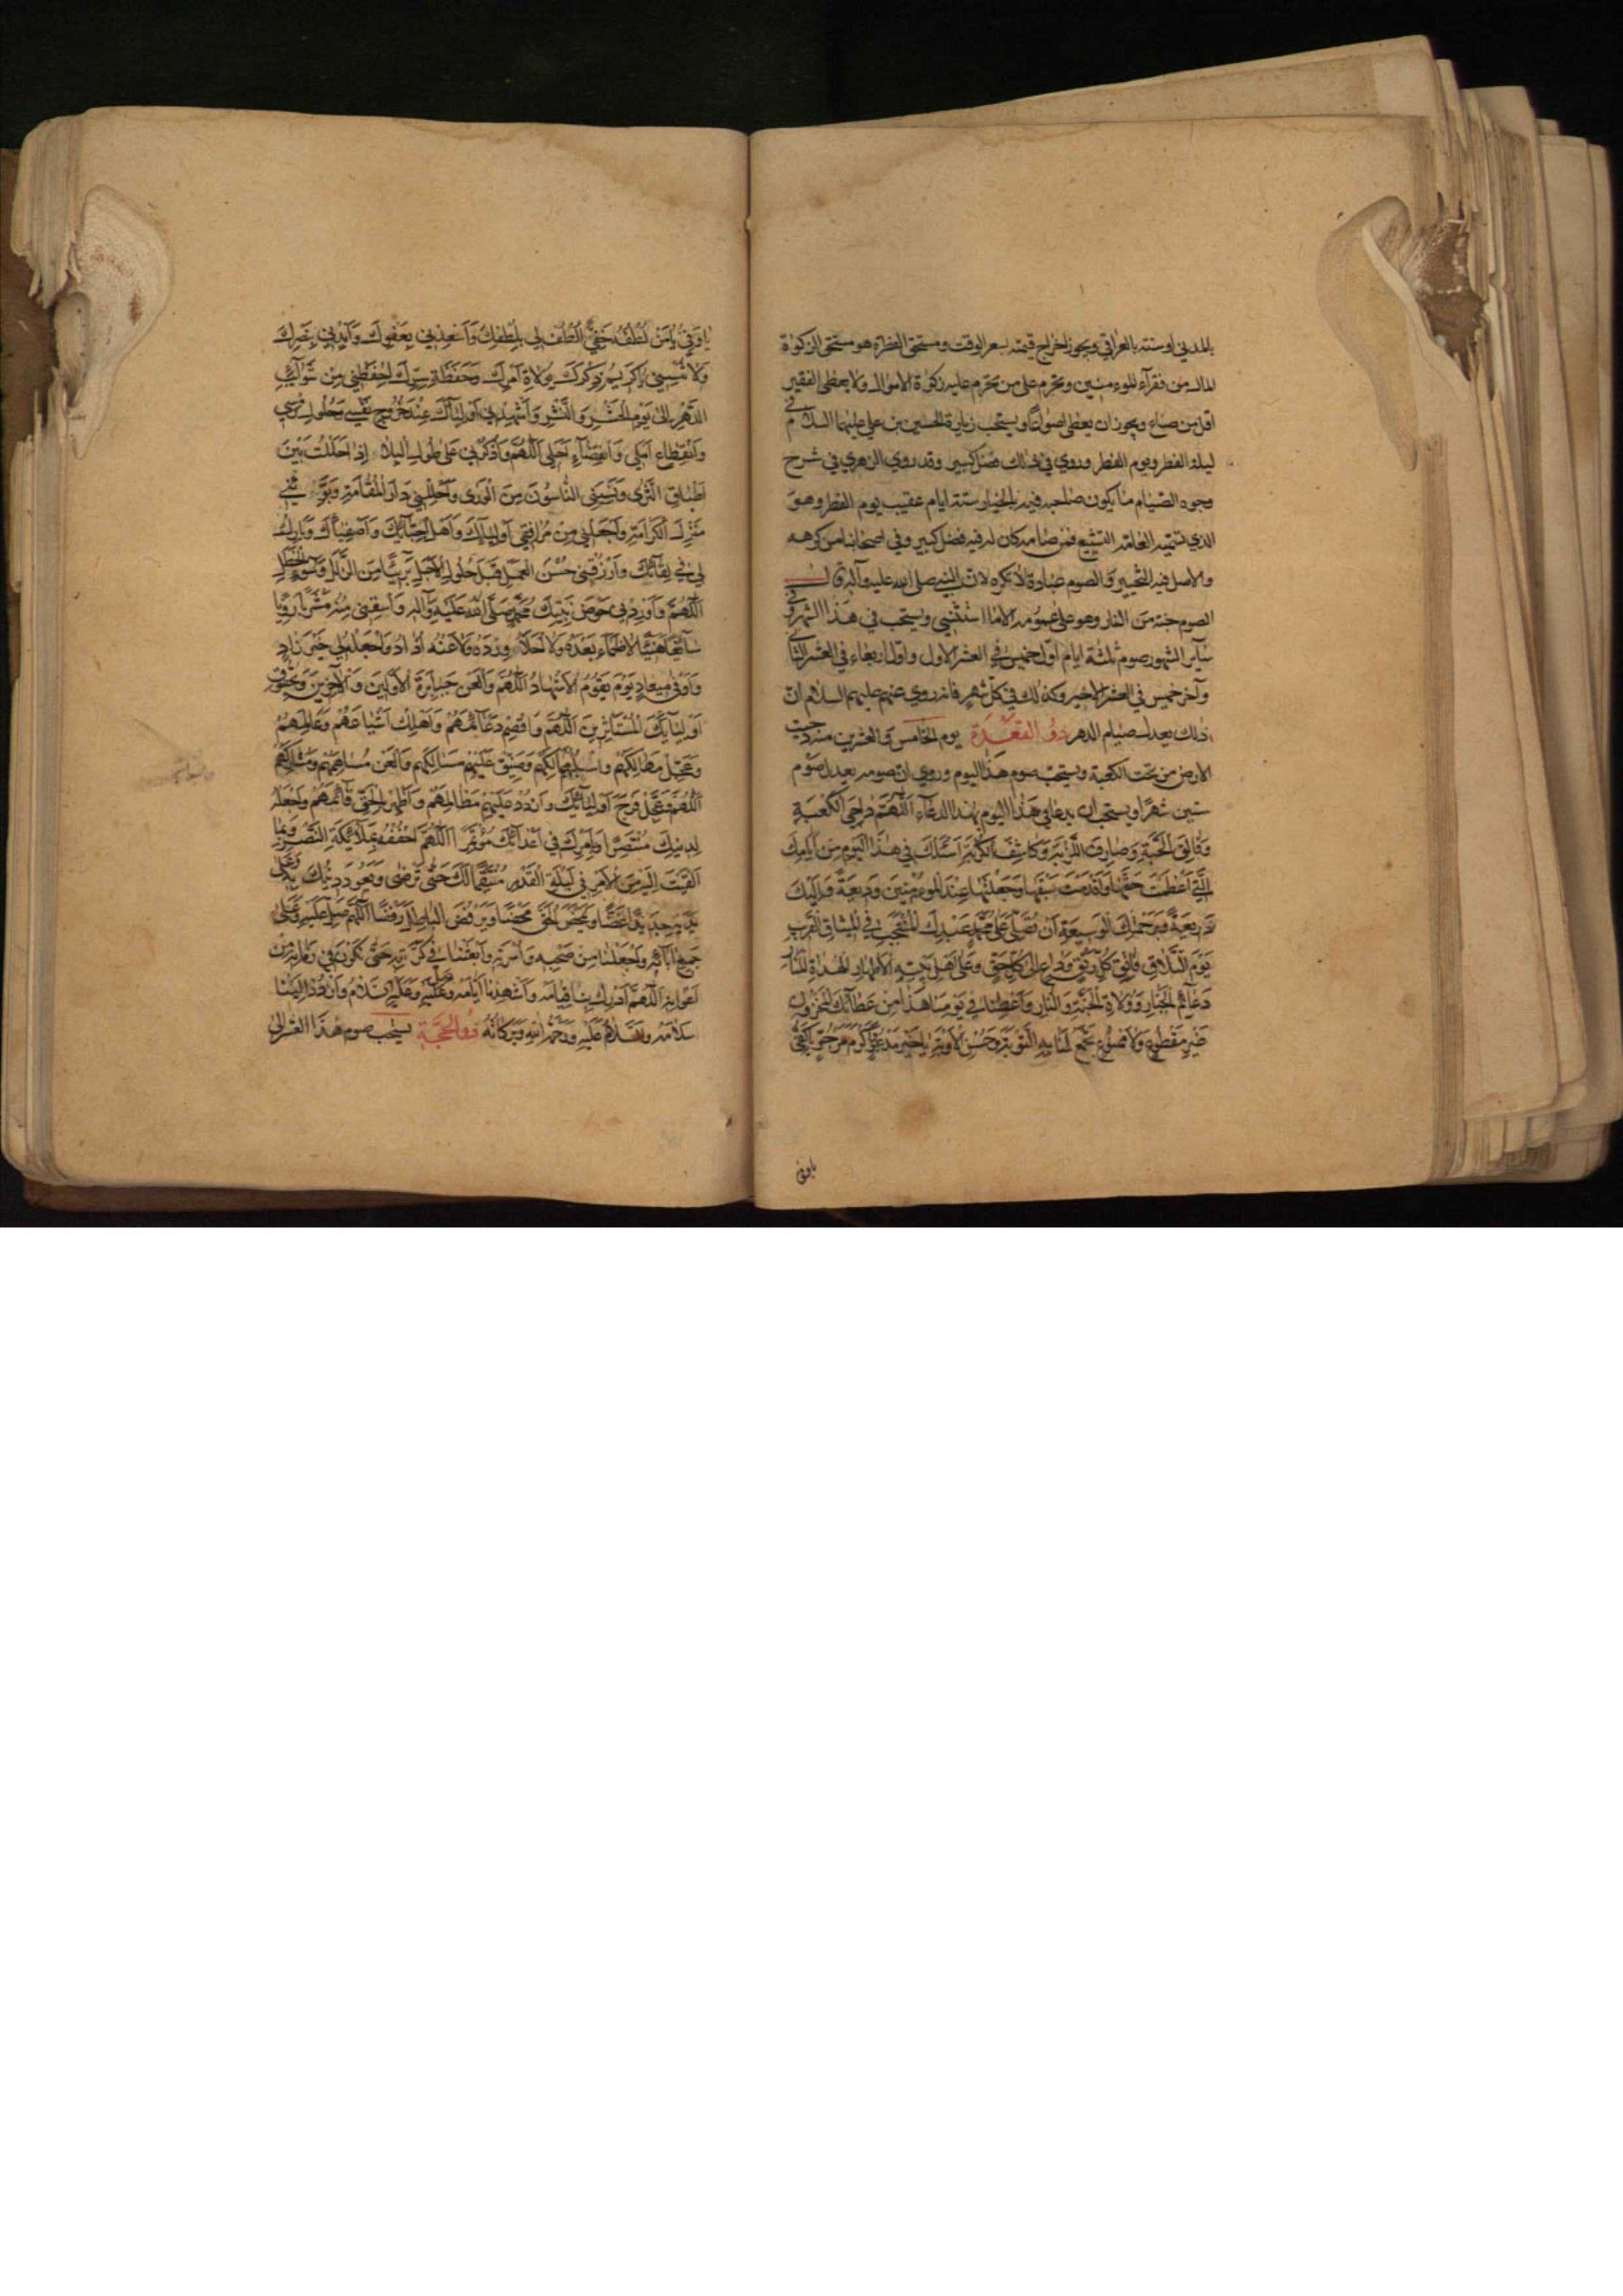 بالمدني او ستة بالعراقي ويجوز اخراج قيمته بسعر الوقت ومستحق الفطرة هو مستحق الزكوة
المال من فقرآء المؤمنين وتحرم على من تحرم عليه زكوة الاموال ولا يعطى الفقير
اقل من صاع ويجوز ان يعطى اصواعًا ويستحب زيارة الحسين بن علي عليهما السلام في
ليلة الفطر ويوم الفطر وروي في ذلك فضل كبير وقد روي الزهري في شرح
وجوه الصيام ما يكون صاحبه فيه بالخيار ستة ايام عقيب يوم الفطر وهو
الذي تسميه العامة التشييع فمن صامه كان له فيه فضل كبير وفي اصحابنا من كرهه
والاصل فيه التخيير والصوم عبادة لا تكره لان النبي صلى الله عليه وآله قال
الصوم جنة من النار وهو على عمومه الا ما استثني ويستحب في هذا الشهر وفي
سآير الشهور صوم ثلثة ايام اول خميس في العشر الاول واول اربعاء في العشر الثاني
وآخر خميس في العشر الاخير وكذلك في كل شهر فانه روي عنهم عليهم السلام ان
ذلك يعدل صيام الدهر ذو القعدة يوم الخامس والعشرين منه دحيت
الارض من تحت الكعبة ويستحب صوم هذا اليوم وروي ان صومه يعدل صوم
ستين شهرًا ويستحب ان يدعا في هذا اليوم بهذا الدعآء اللهم داحي الكعبة
وفالق الحبة وصارف اللزبة وكاشف الكربة اسئلك في هذا اليوم من ايامك
التي اعظمت حقها واقدمت سبقها وجعلتها عند المؤمنين وديعة واليك
ذريعة وبرحمتك الوسيعة ان تصلي على محمد عبدك المنتجب في الميثاق القريب
يوم التلاق فاتق كل رتق وداع الى كل حق وعلى اهل بيته الاطهار الهداة المنار
دعآئم الجبار وولاة الجنة والنار واعطنا في يومنا هذا من عطآئك المخزون
غير مقطوع ولا ممنوع تجمع لنا به التوبة وحسن الاوبة يا خير مدعو واكرم مرجو يا كفي
يا وفي
يا وفي يا من لطفه خفي الطف لي بلطفك واسعدني بعفوك وايدني بنصرك
ولا تنسني كريم ذكرك بولاة امرك وحفظة سرك احفظني من شوآئب
الدهر الى يوم الحشر والنشر واشهدني اوليآئك عند خروج نفسي وحلول رمسي
وانقطاع املي وانقضآء اجلي اللهم واذكرني على طول البلا اذا حللت بين
اطباق الثرى ونسيني الناسون من الورى واحللني دار المقامة وبوئني
منزل الكرامة واجعلني من مرافقي اوليآئك واهل اجتبآئك واصفيآئك وبارك
لي في لقآئك وارزقني حسن العمل قبل حلول الاجل بريئًا من الزلل وسوء الخطل
اللهم واوردني حوض نبيك محمد صلى الله عليه وآله واسقني منه مشربًا رويًا
سآئغًا هنيئًا لا اظماء بعده ولا احلأ ورده ولا عنه اذاد واجعله لي خير زاد
واوفى ميعاد يوم يقوم الاشهاد اللهم والعن جبابرة الاولين والآخرين وبحقوق
اوليآئك المستأثرين اللهم واقصم دعآئمهم واهلك اشياعهم وعاملهم
وعجل مهالكهم واسلبهم ممالكهم وضيق عليهم مسالكهم والعن مساهمهم ومشاركهم
اللهم وعجل فرج اوليآئك واردد عليهم مظالمهم واظهر بالحق قآئمهم واجعله
لدينك منتصرًا وبامرك في اعدآئك مؤتمرًا اللهم احففه بملآئكة النصر وبما
القيت اليه من الامر في ليلة القدر منتقمًا لك حتى ترضى ويعود دينك به وعلى
يديه جديدًا غضًا ويمحض الحق محضًا ويرفض الباطل رفضًا اللهم صل عليه وعلى
جميع آبآئه واجعلنا من صحبه واسرته وابعثنا في كرته حتى نكون في زمانه من
اعوانه اللهم ادرك بنا قيامه واشهدنا ايامه وصل عليه وعليه السلام واردد الينا
سلامه والسلام عليه ورحمة الله وبركاته ذو الحجة يستحب صوم هذا العشر الى